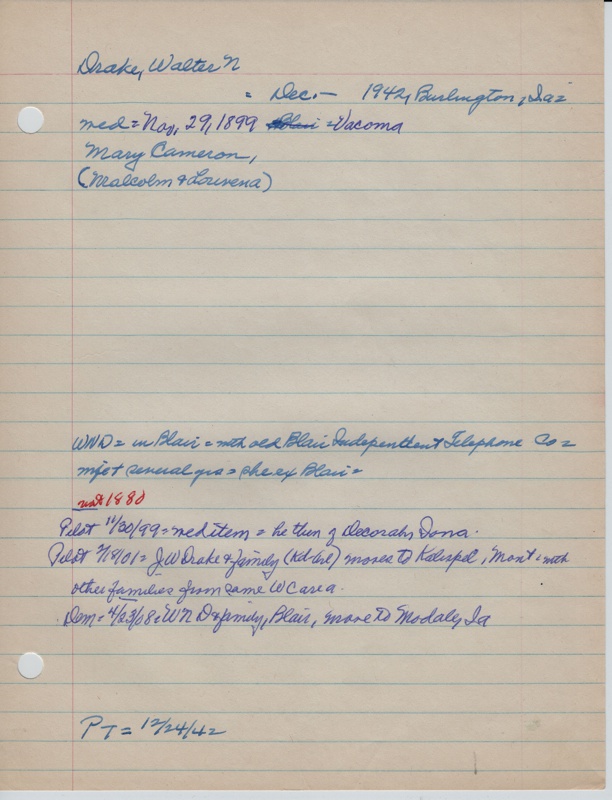 Drake, Walter N
= Dec. - 1942, Burlington, Ia =
wed = Nov, 29, 1899 Blair = Vacoma
Mary Cameron,
(Malcolm & Louvena)
WND = in Blair = with old Blair Independent Telephone Co =
several yrs =
1880
Pilot 11/30/99 = wed item = he then of Decorah, Iowa.
Pilot = J W Drake & family moves to Kalispel, Mont. with
other families from same W C area.
Dem = 4/23/08 = W N D & family, Blair, move to Modale, Ia
PT = 12/24/42